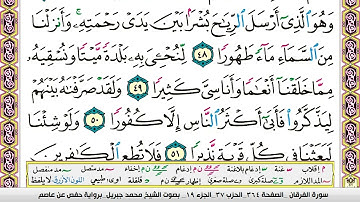 وَهُوَ الَّذِي أَرْسَلَ الرِّيَاحَ بُشْرًا بَيْنَ يَدَيْ رَحْمَتِهِ ۚ وَأَنْزَلْنَا
مِنَ السَّمَاءِ مَاءً طَهُورًا ٤٨ لِنُحْيِيَ بِهِ بَلْدَةً مَيْتًا وَنُسْقِيَهُ
مِمَّا خَلَقْنَا أَنْعَامًا وَأَنَاسِيَّ كَثِيرًا ٤٩ وَلَقَدْ صَرَّفْنَاهُ بَيْنَهُمْ
لِيَذَّكَّرُوا فَأَبَىٰ أَكْثَرُ النَّاسِ إِلَّا كُفُورًا ٥٠ وَلَوْ شِئْنَا
لَبَعَثْنَا فِي كُلِّ قَرْيَةٍ نَذِيرًا ٥١ فَلَا تُطِعِ الْكَافِرِينَ
سورة الفرقان . الصفحة ٣٦٤ . الحزب ٣٧ . الجزء ١٩ . بصوت الشيخ محمد جبريل . برواية حفص عن عاصم